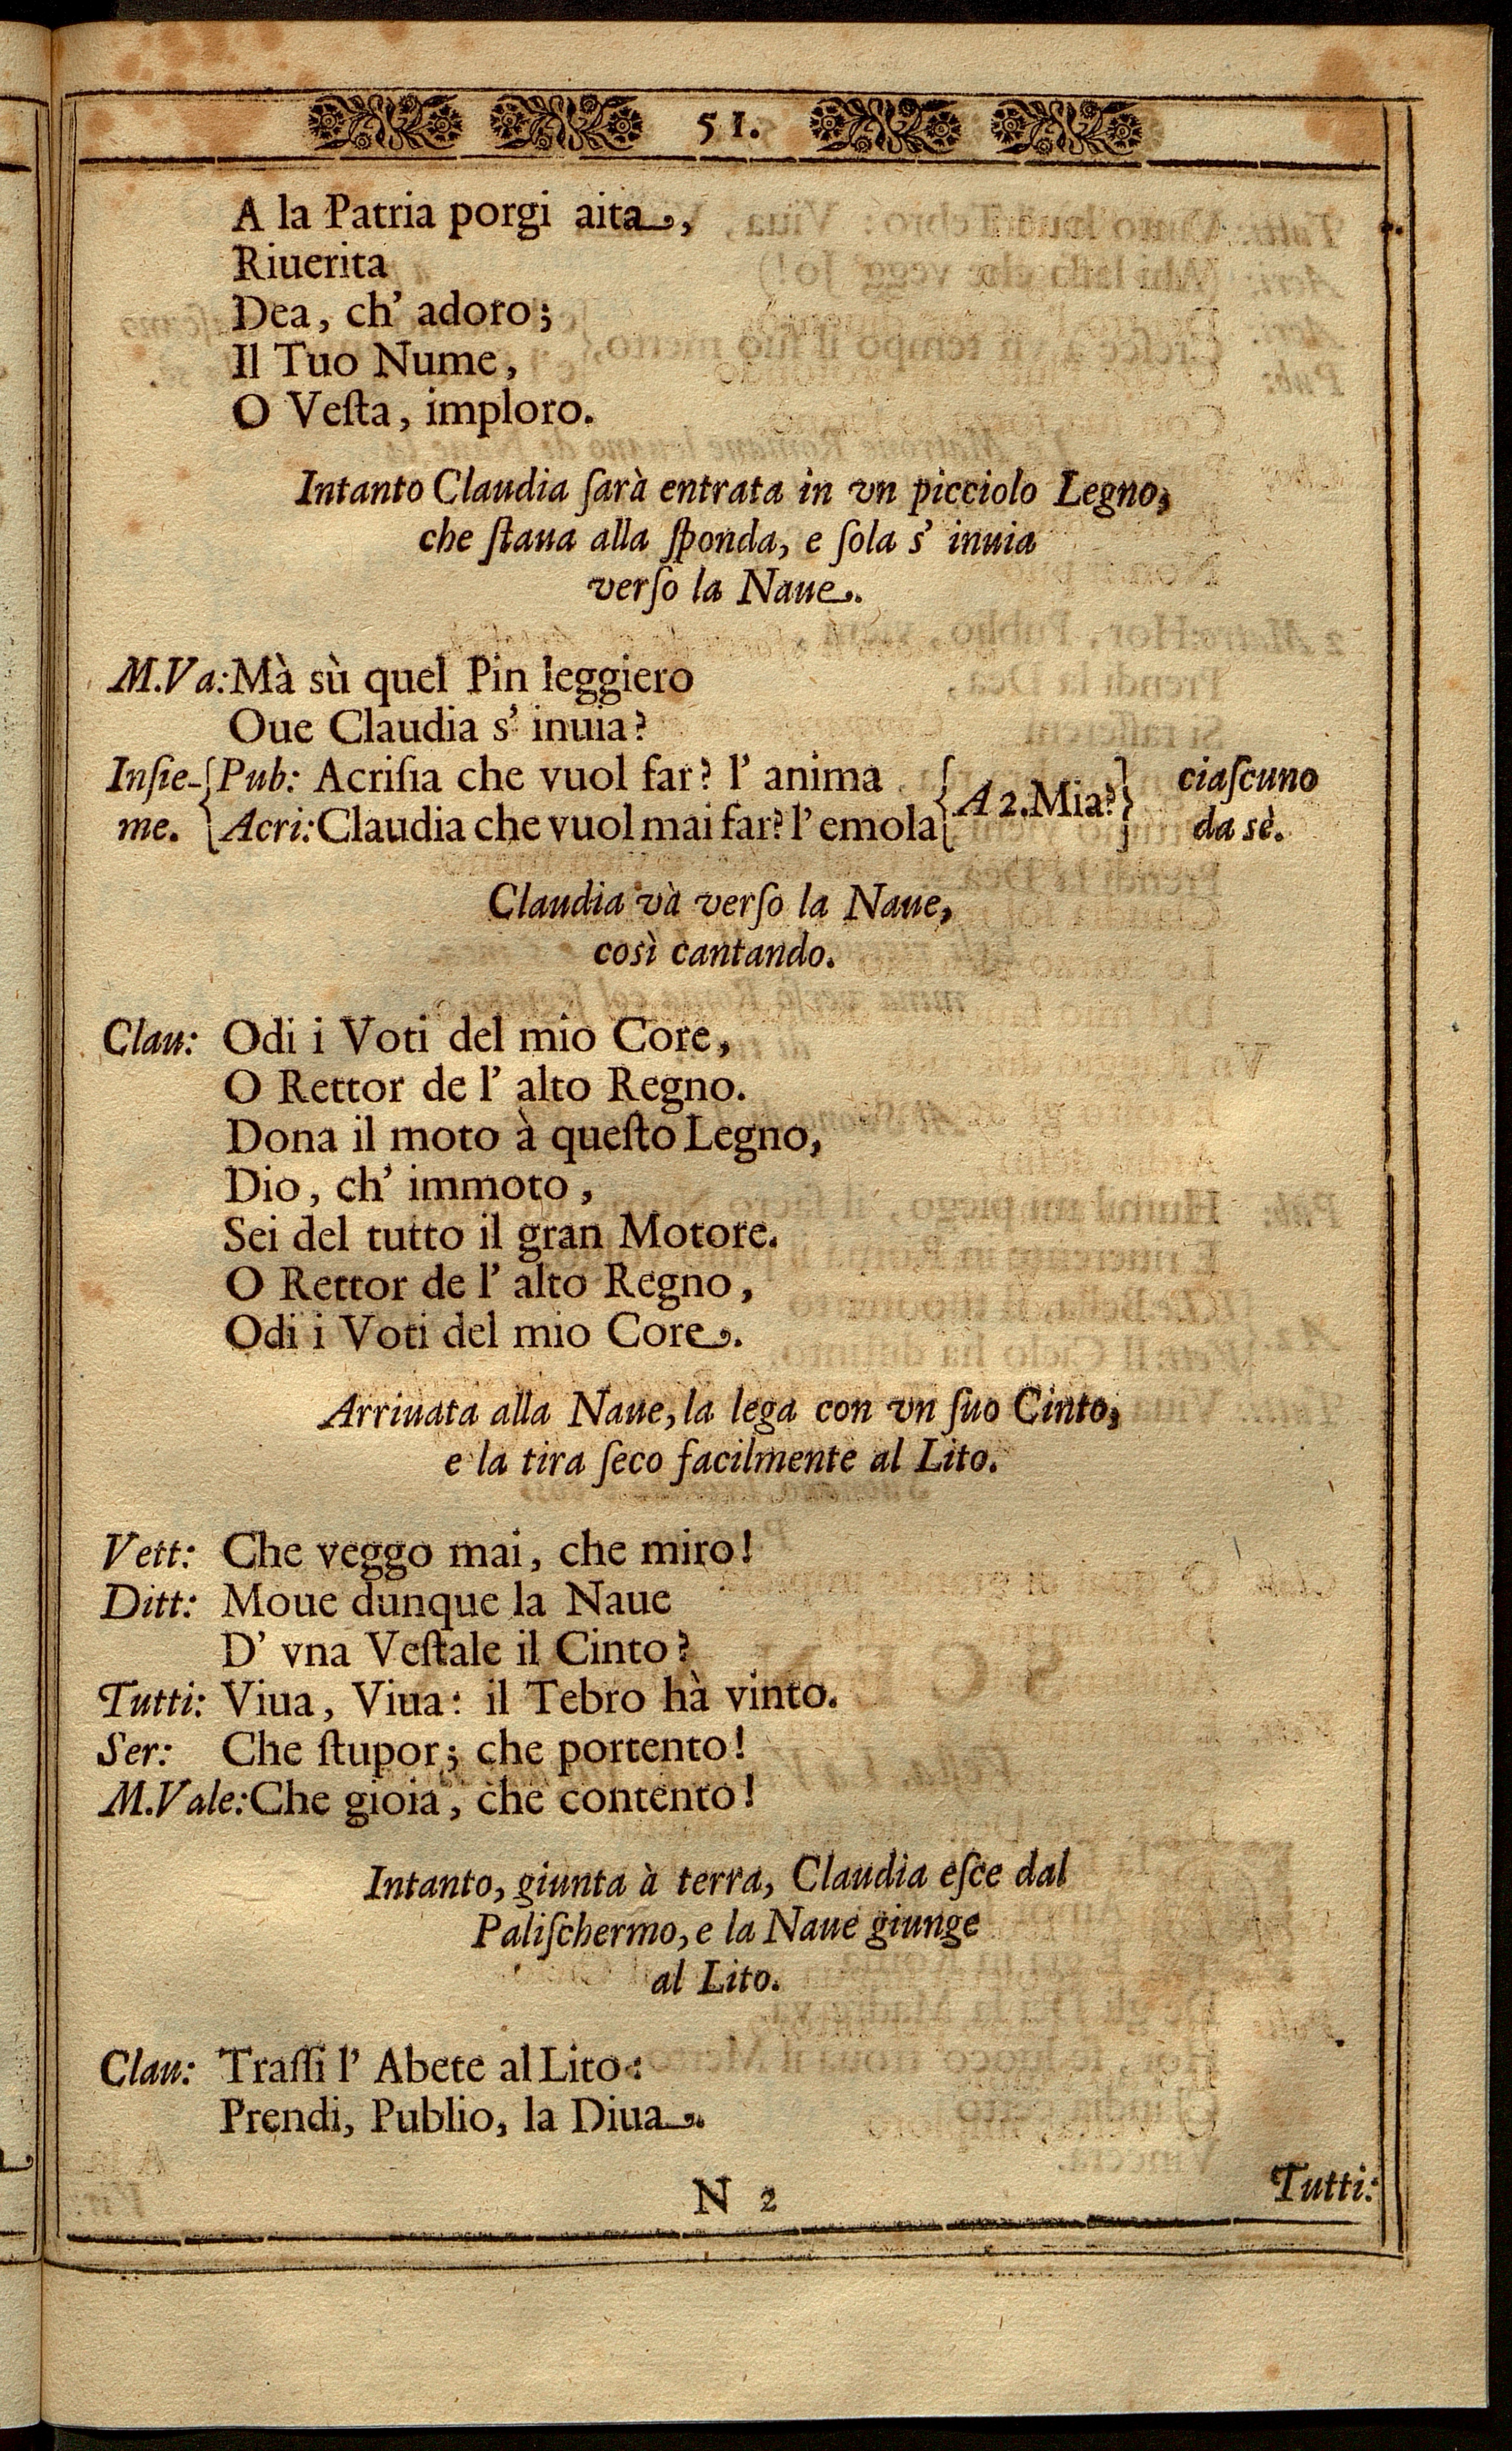 51.
A la Patria porgi aita,
Riuerita
Dea, ch' adoro;
Il Tuo Nume,
O Veſta, imploro.
Intanto Claudia ſarà entrata in vn picciolo Legno,
che ſtaua alla ſponda, e ſola s' inuia
verſo la Naue.
M.Va: Mà sù quel Pin leggiero
Oue Claudia s' inuia?
Inſie- { Pub: Acriſia che vuol far? l' anima { A 2. Mia? } ciaſcuno
me. { Acri: Claudia che vuol mai far? l' emola { } da sè.
Claudia và verſo la Naue,
così cantando.
Clau: Odi i Voti del mio Core,
O Rettor de l' alto Regno.
Dona il moto à queſto Legno,
Dio, ch' immoto,
Sei del tutto il gran Motore.
O Rettor de l' alto Regno,
Odi i Voti del mio Core.
Arriuata alla Naue, la lega con vn ſuo Cinto,
e la tira ſeco facilmente al Lito.
Vett: Che veggo mai, che miro!
Ditt: Moue dunque la Naue
D' vna Veſtale il Cinto?
Tutti: Viua, Viua: il Tebro hà vinto.
Ser: Che ſtupor; che portento!
M.Vale: Che gioia, che contento!
Intanto, giunta à terra, Claudia eſce dal
Paliſchermo, e la Naue giunge
al Lito.
Clau: Traſſi l' Abete al Lito:
Prendi, Publio, la Diua.
N 2
Tutti: